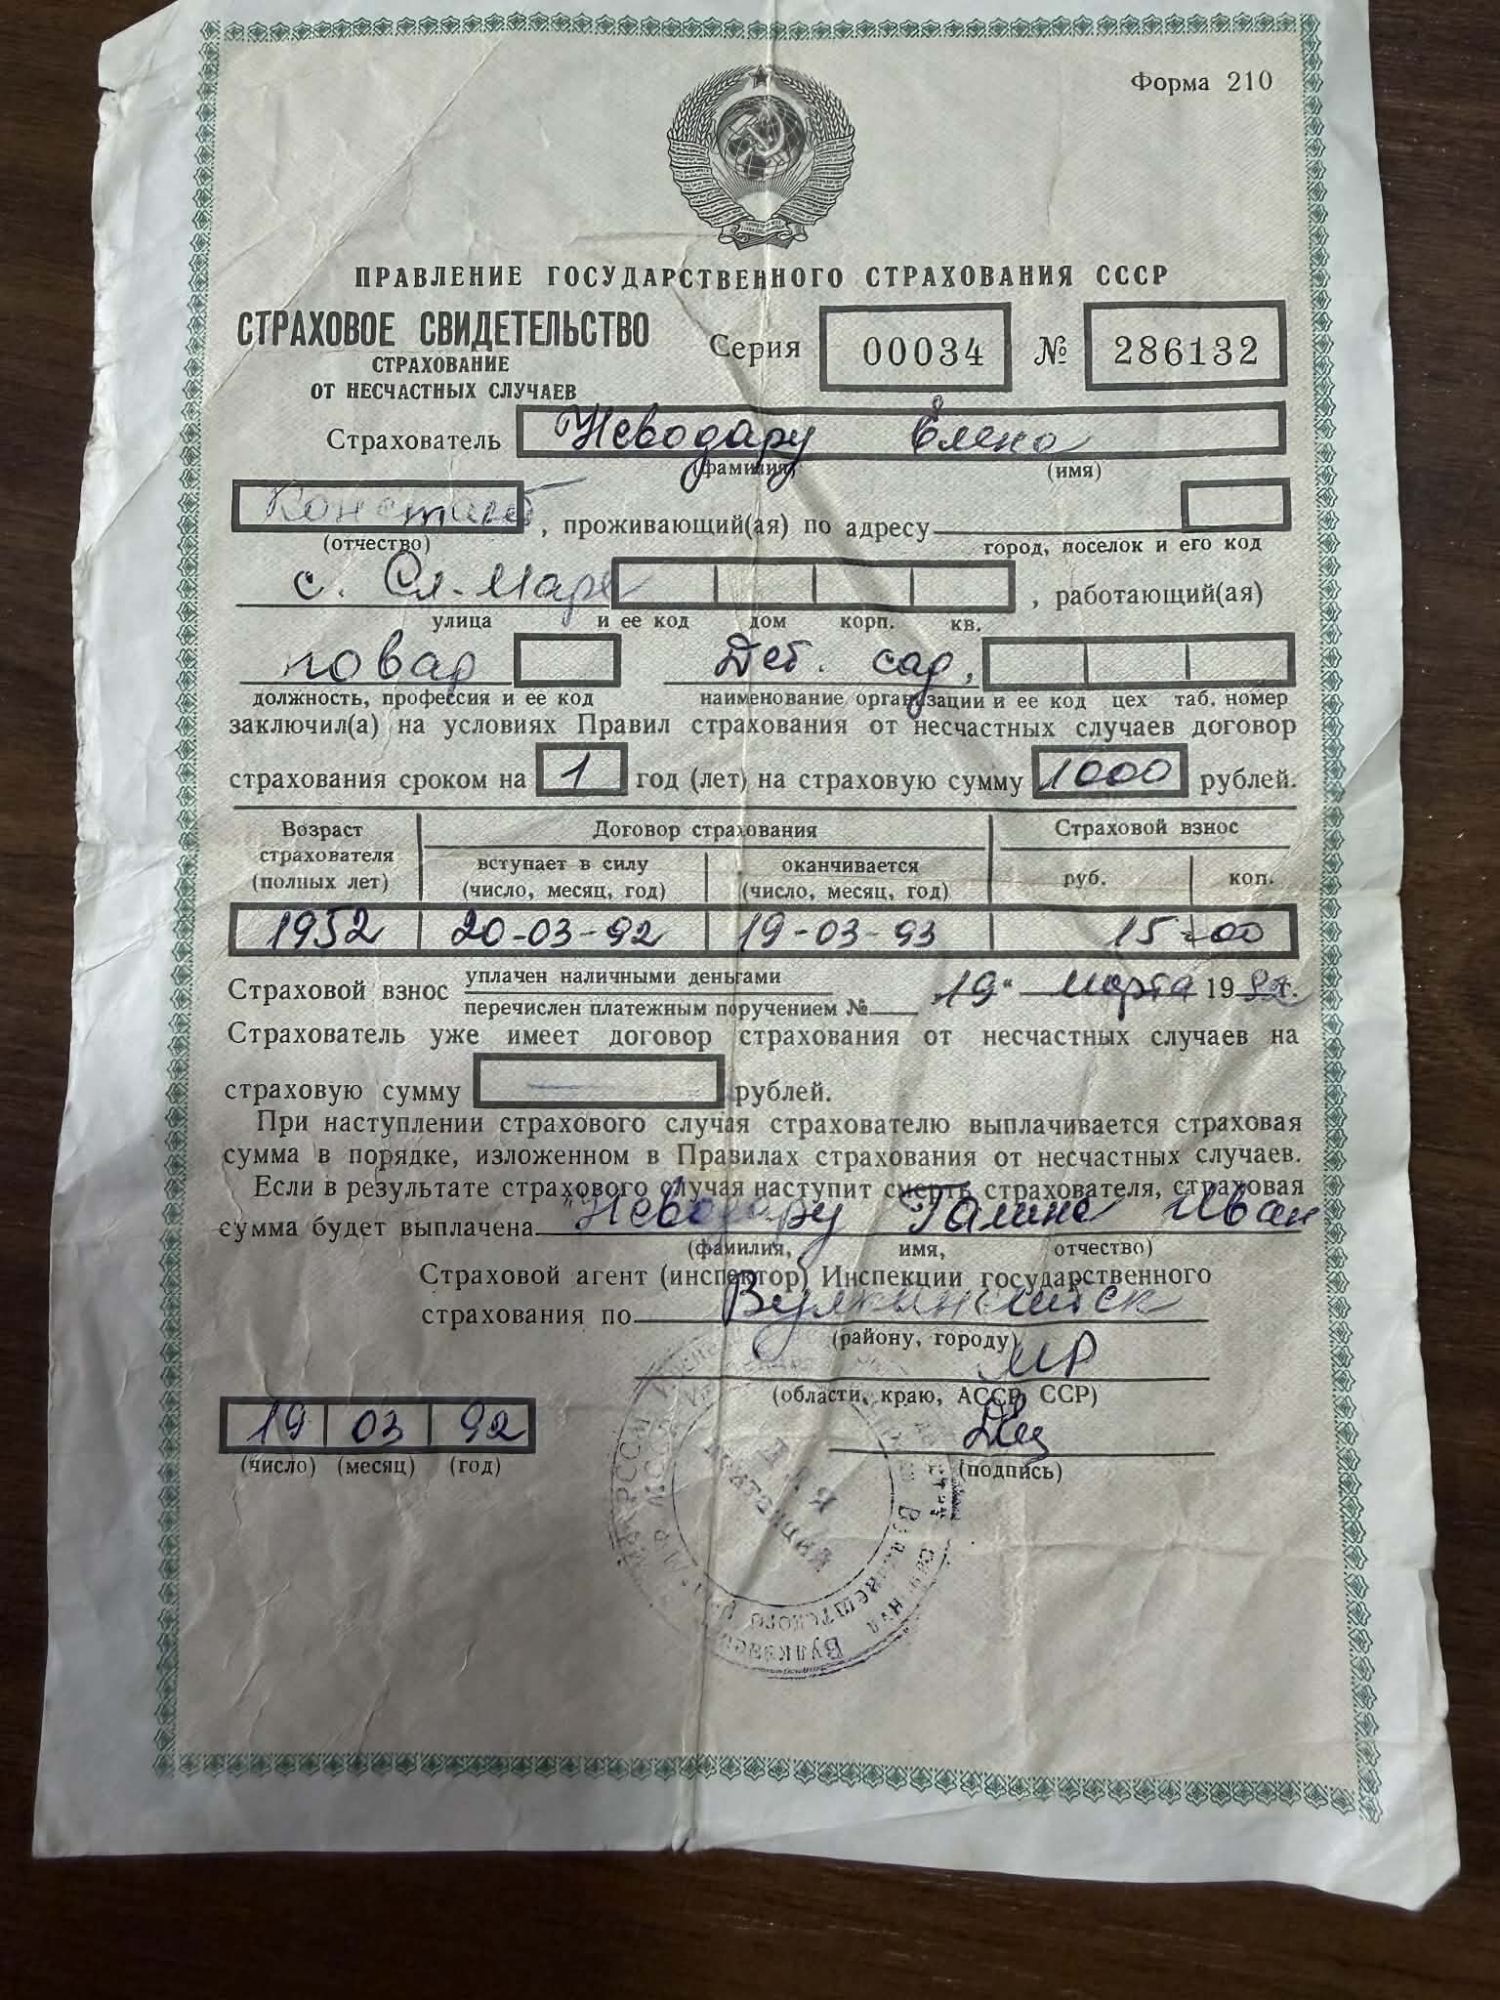 Форма 210
ПРАВЛЕНИЕ ГОСУДАРСТВЕННОГО СТРАХОВАНИЯ СССР
СТРАХОВОЕ СВИДЕТЕЛЬСТВО
СТРАХОВАНИЕ
ОТ НЕСЧАСТНЫХ СЛУЧАЕВ
Серия 00034 № 286132
Страхователь Неводару Елена
(фамилия) (имя)
Констант , проживающий(ая) по адресу
(отчество) город, поселок и его код
с. Сл-Маре , работающий(ая)
улица и ее код дом корп. кв.
повар Дет. сад,
должность, профессия и ее код наименование организации и ее код цех таб. номер
заключил(а) на условиях Правил страхования от несчастных случаев договор
страхования сроком на 1 год (лет) на страховую сумму 1000 рублей.
Возраст страхователя (полных лет) Договор страхования Страховой взнос
вступает в силу (число, месяц, год) оканчивается (число, месяц, год) руб. коп.
1952 20-03-92 19-03-93 15-00
Страховой взнос уплачен наличными деньгами
перечислен платежным поручением № „19" марта 1992г.
Страхователь уже имеет договор страхования от несчастных случаев на
страховую сумму — рублей.
При наступлении страхового случая страхователю выплачивается страховая
сумма в порядке, изложенном в Правилах страхования от несчастных случаев.
Если в результате страхового случая наступит смерть страхователя, страховая
сумма будет выплачена Неводару Галина Иван
(фамилия, имя, отчество)
Страховой агент (инспектор) Инспекции государственного
страхования по
(району, городу)
МР
(области, краю, АССР, ССР)
19 03 92
(число) (месяц) (год)
(подпись)